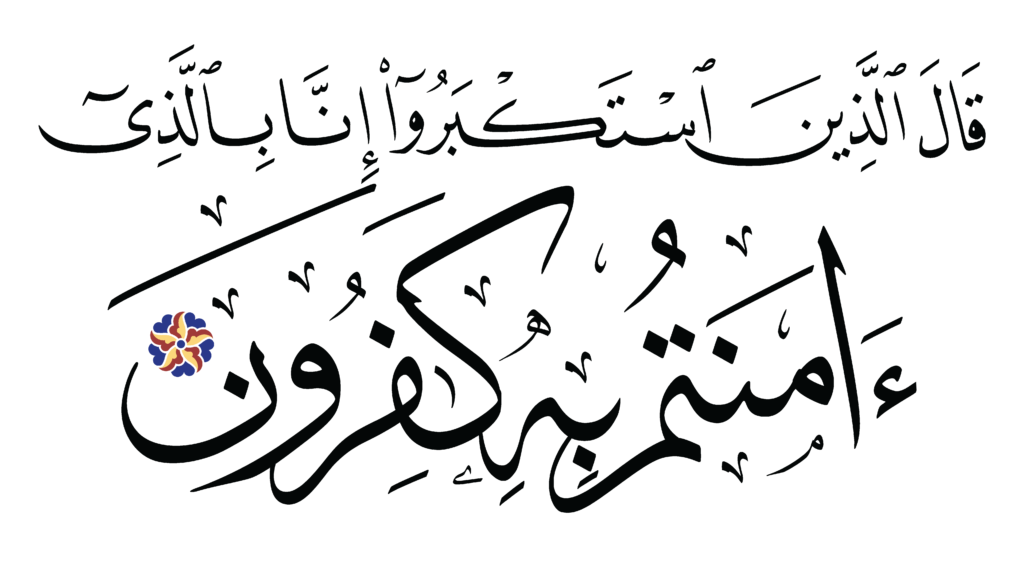 قَالَ ٱلَّذِينَ ٱسْتَكْبَرُوٓا۟ إِنَّا بِٱلَّذِىٓ
ءَامَنتُم بِهِۦ كَٰفِرُونَ